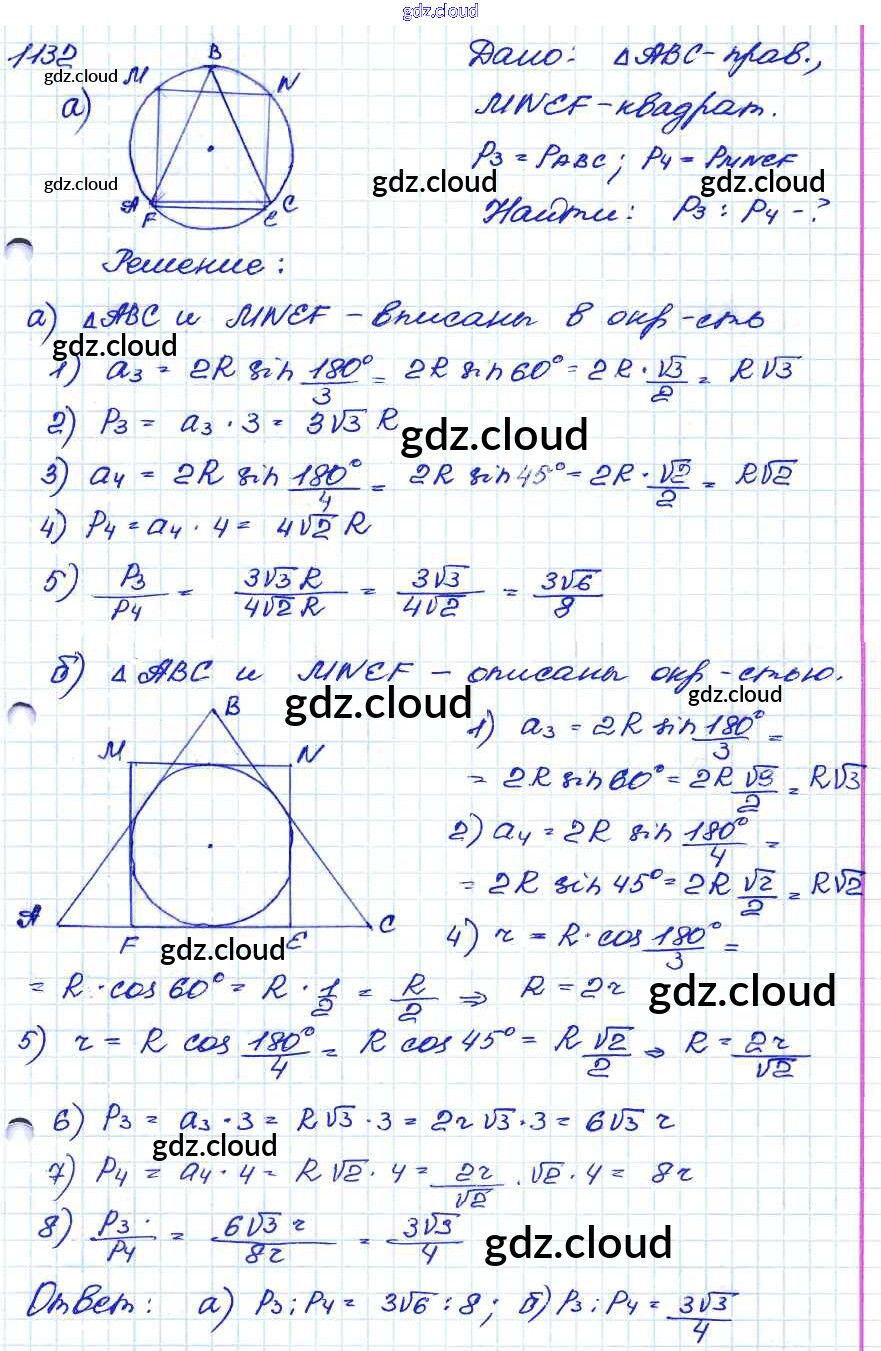 gdz.cloud
1132
gdz.cloud
а)
M B N
A F E C
gdz.cloud
Дано: △ABC-прав.,
MNEF-квадрат.
P₃ = P_ABC; P₄ = P_MNEF
gdz.cloud gdz.cloud
Найти: P₃ : P₄ - ?
Решение:
а) △ABC и MNEF - вписаны в окр-сть
gdz.cloud
1) a₃ = 2R sin 180°/3 = 2R sin 60° = 2R · √3/2 = R√3
2) P₃ = a₃ · 3 = 3√3 R
gdz.cloud
3) a₄ = 2R sin 180°/4 = 2R sin 45° = 2R · √2/2 = R√2
4) P₄ = a₄ · 4 = 4√2 R
5) P₃/P₄ = 3√3 R/4√2 R = 3√3/4√2 = 3√6/8
б) △ABC и MNEF - описаны окр-стью.
gdz.cloud gdz.cloud
B
M N
A F E C
1) a₃ = 2R sin 180°/3 =
= 2R sin 60° = 2R √3/2 = R√3
2) a₄ = 2R sin 180°/4 =
= 2R sin 45° = 2R √2/2 = R√2
4) r = R · cos 180°/3 =
gdz.cloud
= R · cos 60° = R · 1/2 = R/2 ⇒ R = 2r
gdz.cloud
5) r = R cos 180°/4 = R cos 45° = R √2/2 ⇒ R = 2r/√2
6) P₃ = a₃ · 3 = R√3 · 3 = 2r√3 · 3 = 6√3 r
gdz.cloud
7) P₄ = a₄ · 4 = R√2 · 4 = 2r/√2 · √2 · 4 = 8r
8) P₃/P₄ = 6√3 r/8r = 3√3/4
gdz.cloud
Ответ: а) P₃ : P₄ = 3√6 : 8; б) P₃ : P₄ = 3√3/4